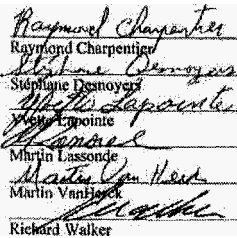 Raymond Charpentier
Raymond Charpentier
Stéphane Desnoyers
Stéphane Desnoyers
Yvette Lapointe
Yvette Lapointe
Martin Lassonde
Martin Van Herck
Martin VanHerck
Richard Walker